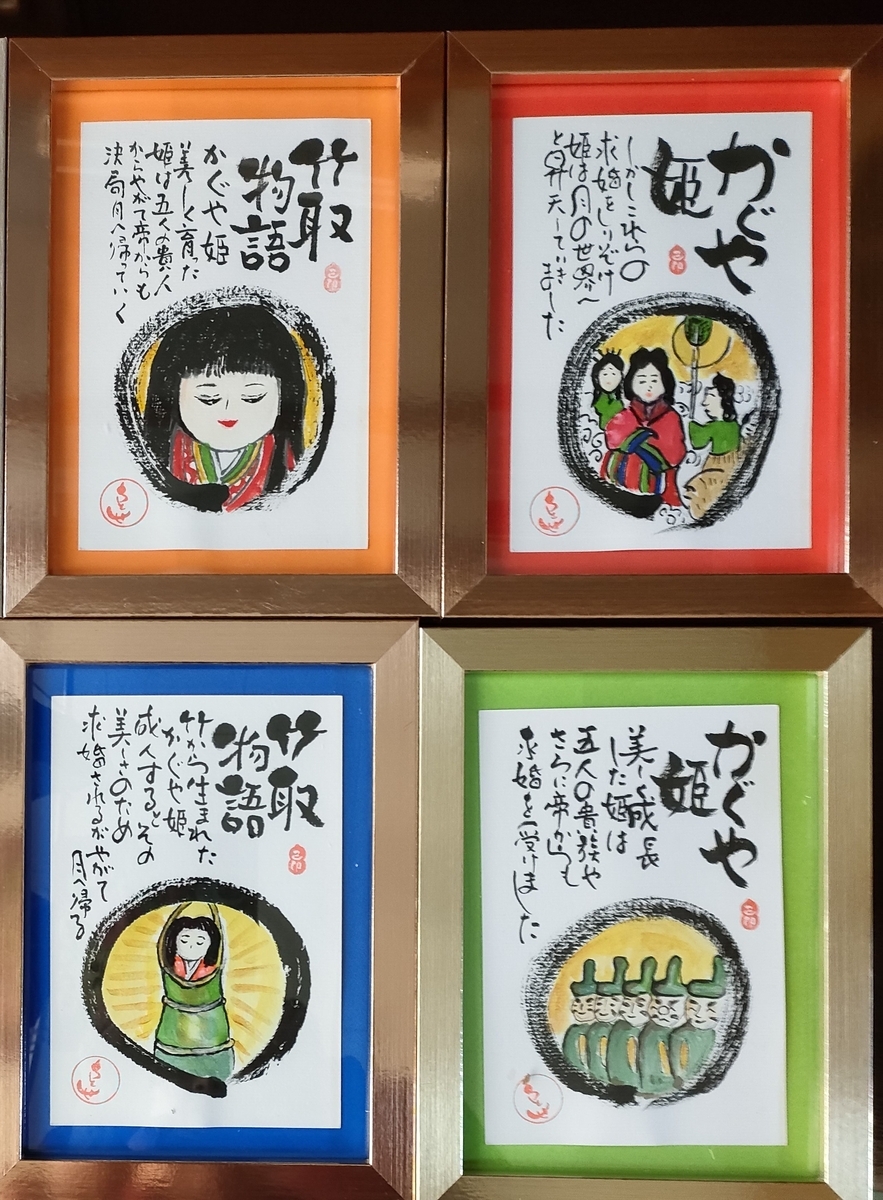 竹取
物語
かぐや姫
美しく育った
姫は五人の貴人
からやがて帝からも
決局月へ帰っていく
かぐや
姫
しかしこれらの
求婚をしりぞけ
姫は月の世界へ
と昇天していき
ました
竹取
物語
竹から生まれた
かぐや姫
成人するとその
美しさのため
求婚されるがやがて
月へ帰る
かぐや
姫
美しく成長
した姫は
五人の貴族や
さらに帝からも
求婚を受けました